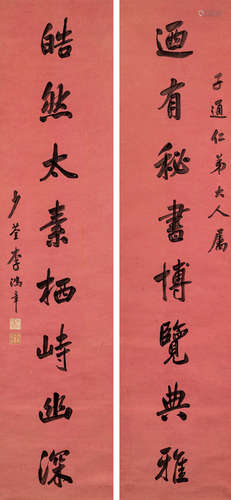 子通仁弟大人属
迺有秘書博覽典雅
皓然太素栖峙幽深
少荃李鴻章